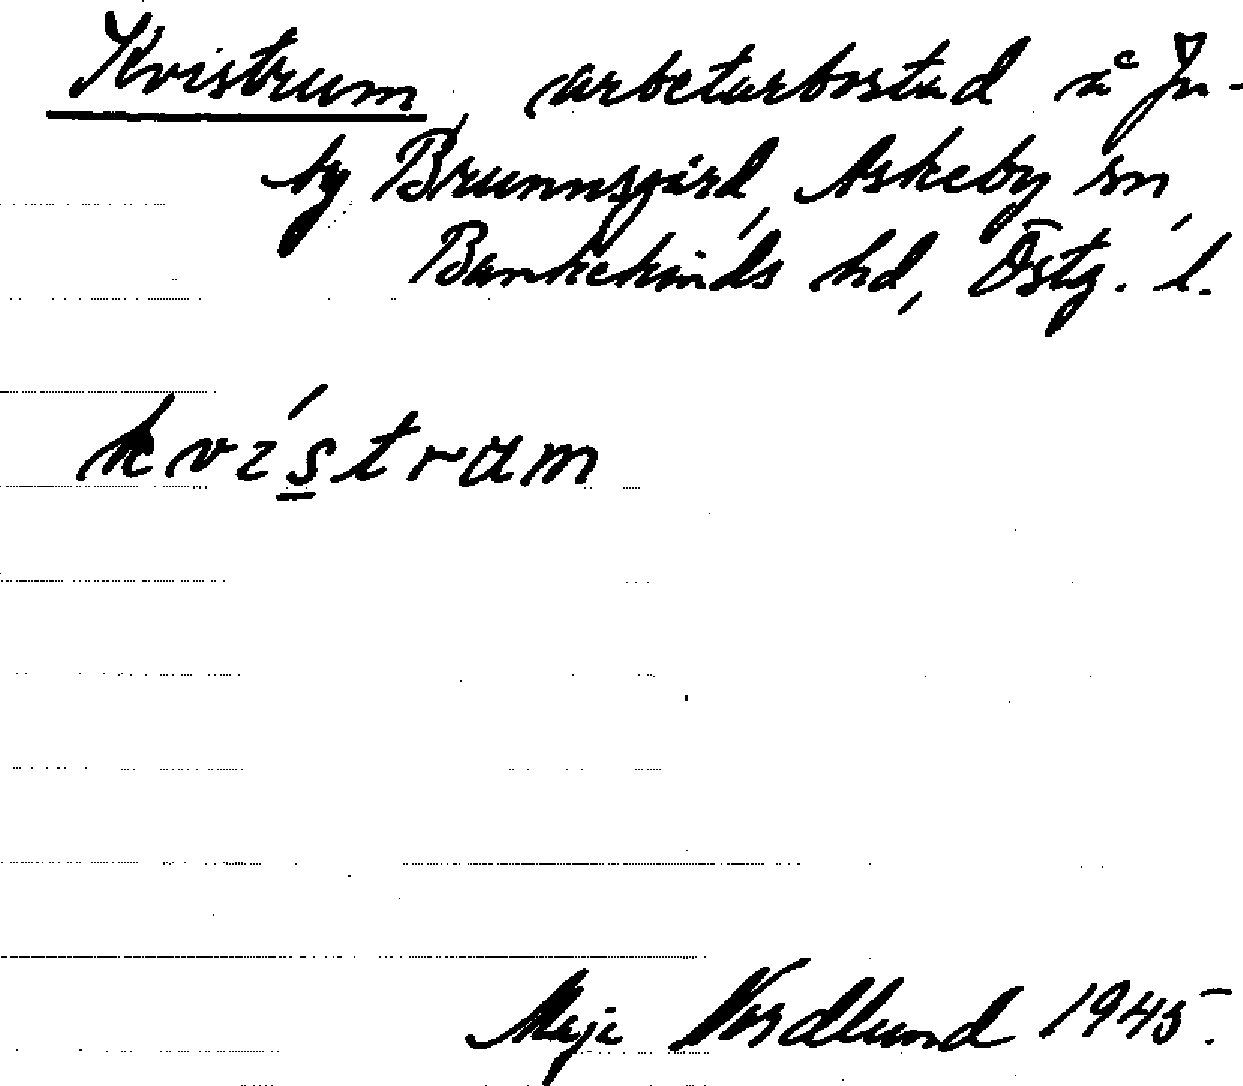 Kvistrum, arbetarbostad å Ju-
by Brunnsgård, Askeby sn,
Bankekinds hd, Östg. l.
kvístrum
Maja Nordlund 1945.